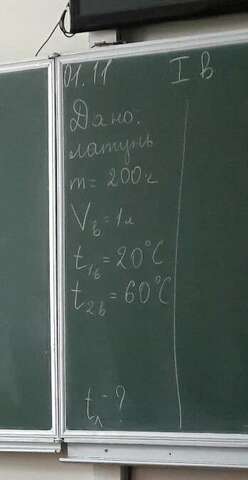 01.11 I в
Дано:
латунь
m = 200г
Vв = 1л
t₁в = 20°C
t₂в = 60°C
tл - ?